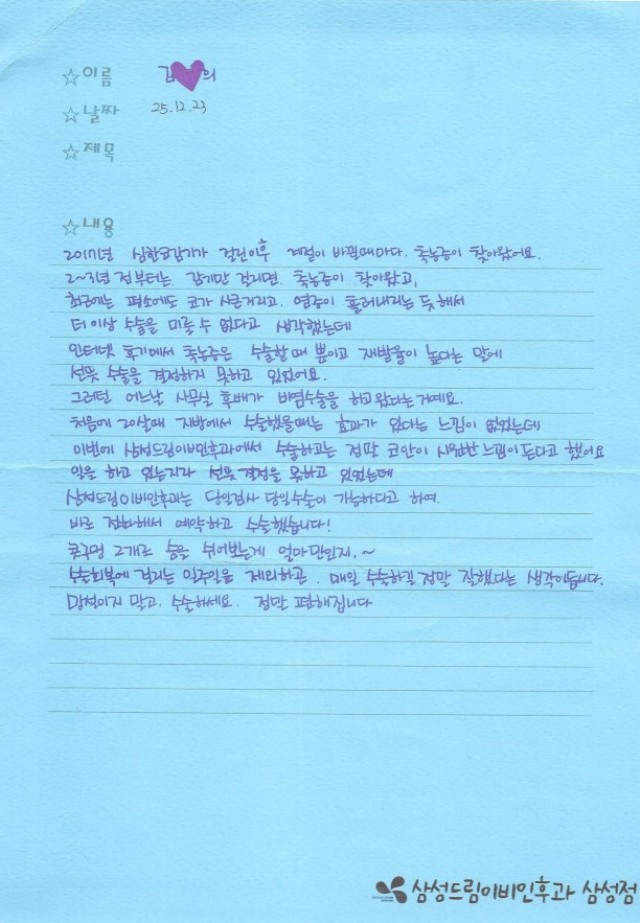 ☆이름 김♥의
☆날짜 25.12.23
☆제목
☆내용
2017년 심한코감기가 걸린이후 계절이 바뀔때마다. 축농증이 찾아왔어요.
2~3년 전부터는. 감기만 걸리면. 축농증이 찾아왔고,
최근에는 평소에도 코가 시큰거리고. 염증이 흘러내리는 듯해서
더 이상 수술을 미룰 수 없다고 생각했는데
인터넷 후기에서 축농증은 수술할때 뿐이고 재발율이 높다는 말에
선뜻 수술을 결정하지 못하고 있었어요.
그러던 어느날 사무실 후배가 비염수술을 하고왔다는거예요.
처음에 20살때 지방에서 수술했을때는 효과가 있다는 느낌이 없었는데
이번에 삼성드림이비인후과에서 수술하고는 정말 코안이 시원한 느낌이 든다고 했어요
일을 하고 있는지라 선뜻 결정을 못하고 있었는데
삼성드림이비인후과는 당일검사 당일수술이 가능하다고 하여.
바로 전화해서 예약하고 수술했습니다!
콧구멍 2개로 숨을 쉬어보는게 얼마만인지,~
수술회복에 걸리는 일주일을 제외하곤. 매일 수술하길 정말 잘했다는 생각이듭니다.
망설이지 말고. 수술하세요. 정말 편해집니다
삼성드림이비인후과 삼성점